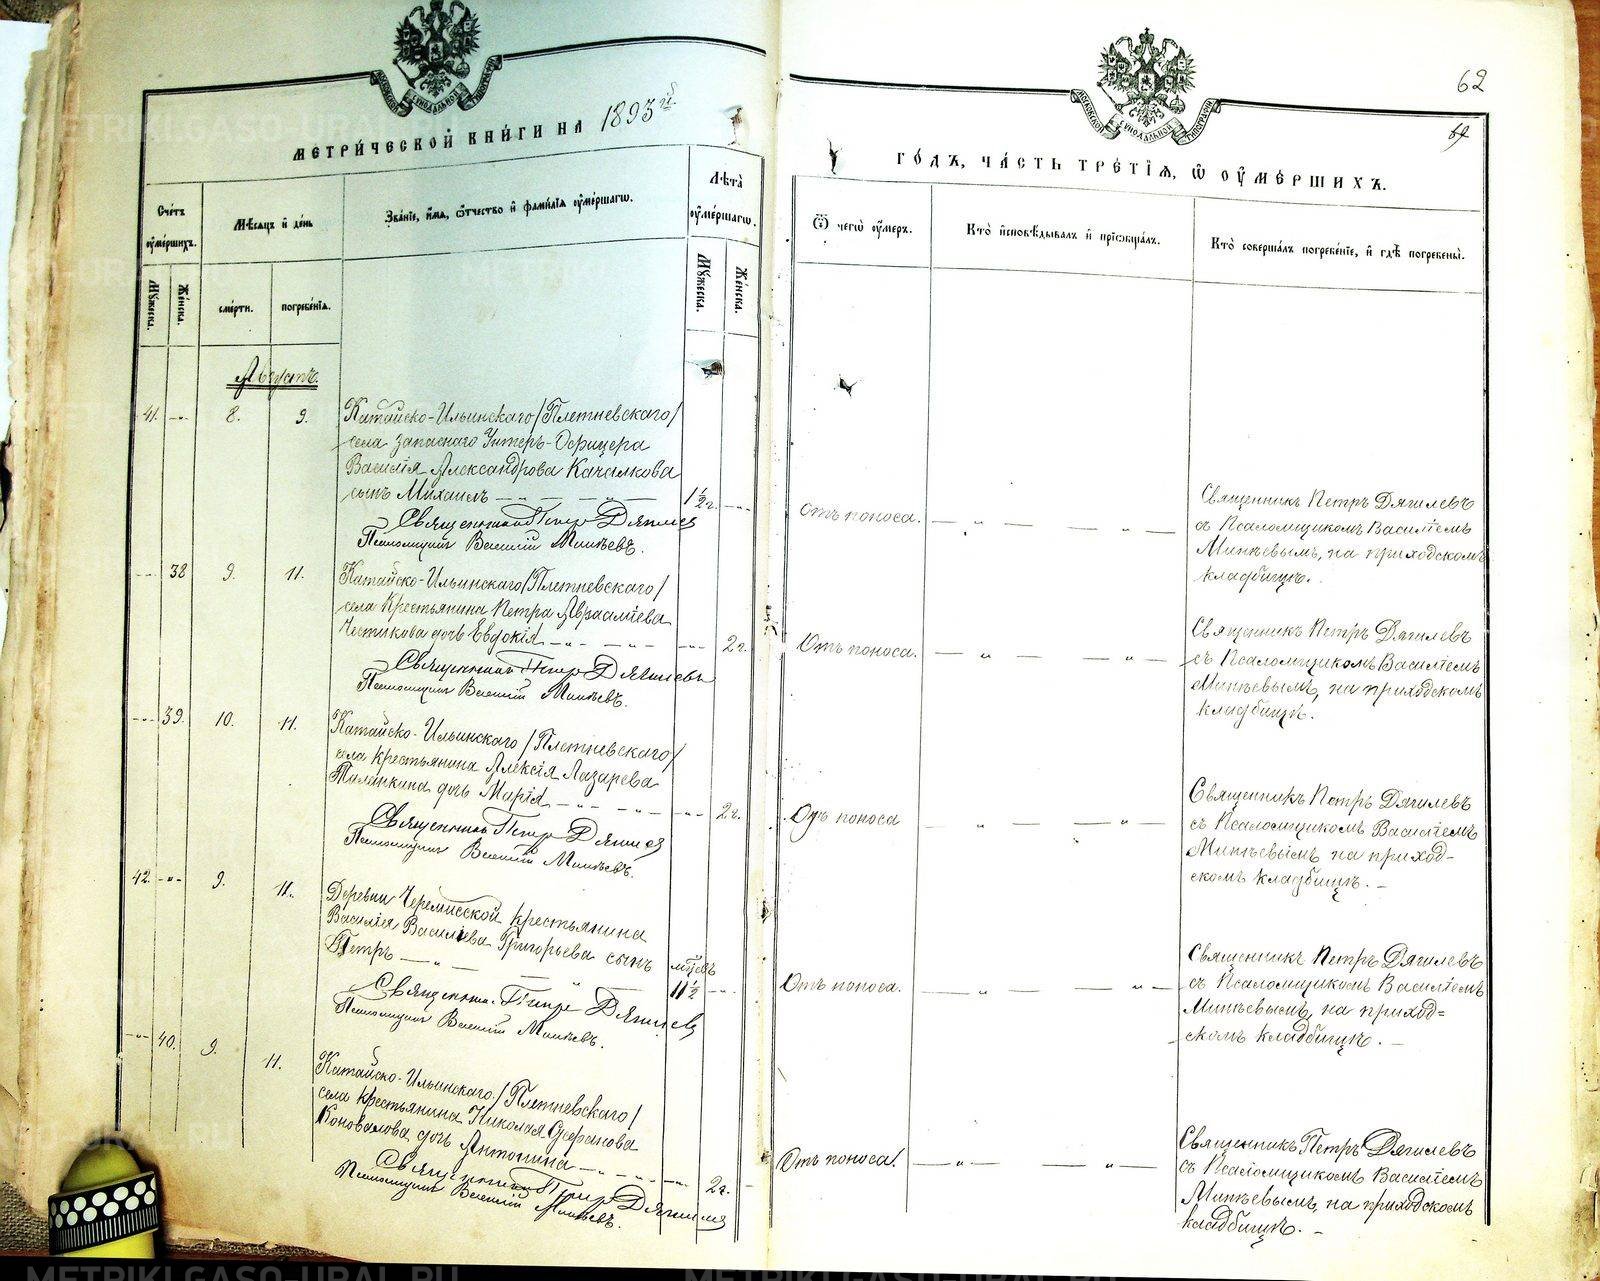 МЕТРИЧЕСКОЙ КНИГИ НА 1893й
Счетъ умершихъ.
Мужеска.
Женска.
Мѣсяцъ и день
смерти.
погребенія.
Званіе, имя, отчество и фамилія умершаго.
Лѣта умершаго.
Мужеска.
Женска.
Августъ.
41. -"- 8. 9. Катайско-Ильинскаго/Плетневскаго/
села запаснаго Унтеръ-Офицера
Василія Александрова Качалкова
сынъ Михаилъ — " — " — 1½ г.
Священникъ Петръ Дягилевъ
Псаломщикъ Василій Минѣевъ.
--- 38 9. 11. Катайско-Ильинскаго/Плетневскаго/
села Крестьянина Петра Авраамiева
дочь Евдокія — " — " — 2 г.
Священникъ Петръ Дягилевъ
Псаломщикъ Василій Минѣевъ.
--- 39. 10. 11. Катайско-Ильинскаго/Плетневскаго/
села крестьянина Алексія Лазарева
дочь Марія — " — " — " — 2 г.
Священникъ Петръ Дягилевъ
Псаломщикъ Василій Минѣевъ.
42. -"- 9. 11. Деревни Черемисской крестьянина
Василія Васильева Григорьева сынъ
Петръ — " — " — мцевъ 11½
Священникъ Петръ Дягилевъ
Псаломщикъ Василій Минѣевъ.
-"- 40. 9. 11. Катайско-Ильинскаго/Плетневскаго/
села крестьянина Николая
Коновалова дочь Антонина — " — " — 2 г.
Священникъ Петръ Дягилевъ
Псаломщикъ Василій Минѣевъ.
62
ГОДЪ, ЧАСТЬ ТРЕТІЯ, Ѿ УМЕРШИХЪ.
Ѿ чего умеръ.
Кто исповѣдывалъ и пріобщалъ.
Кто совершалъ погребеніе, и гдѣ погребены.
отъ поноса. — " — — " —
Священникъ Петръ Дягилевъ
съ Псаломщикомъ Василіемъ
Минѣевымъ, на приходскомъ
кладбищѣ.
Отъ поноса. — " — — " —
Священникъ Петръ Дягилевъ
съ Псаломщикомъ Василіемъ
Минѣевымъ, на приходскомъ
кладбищѣ.
Отъ поноса — " — — " —
Священникъ Петръ Дягилевъ
съ Псаломщикомъ Василіемъ
Минѣевымъ на приход-
скомъ кладбищѣ. —
Отъ поноса. — " — — " —
Священникъ Петръ Дягилевъ
съ Псаломщикомъ Василіемъ
Минѣевымъ, на приход=
скомъ кладбищѣ. —
Отъ поноса. — " — — " —
Священникъ Петръ Дягилевъ
съ Псаломщикомъ Василіемъ
Минѣевымъ, на приходскомъ
кладбищѣ. —
METRIKI.GASO-URAL.RU